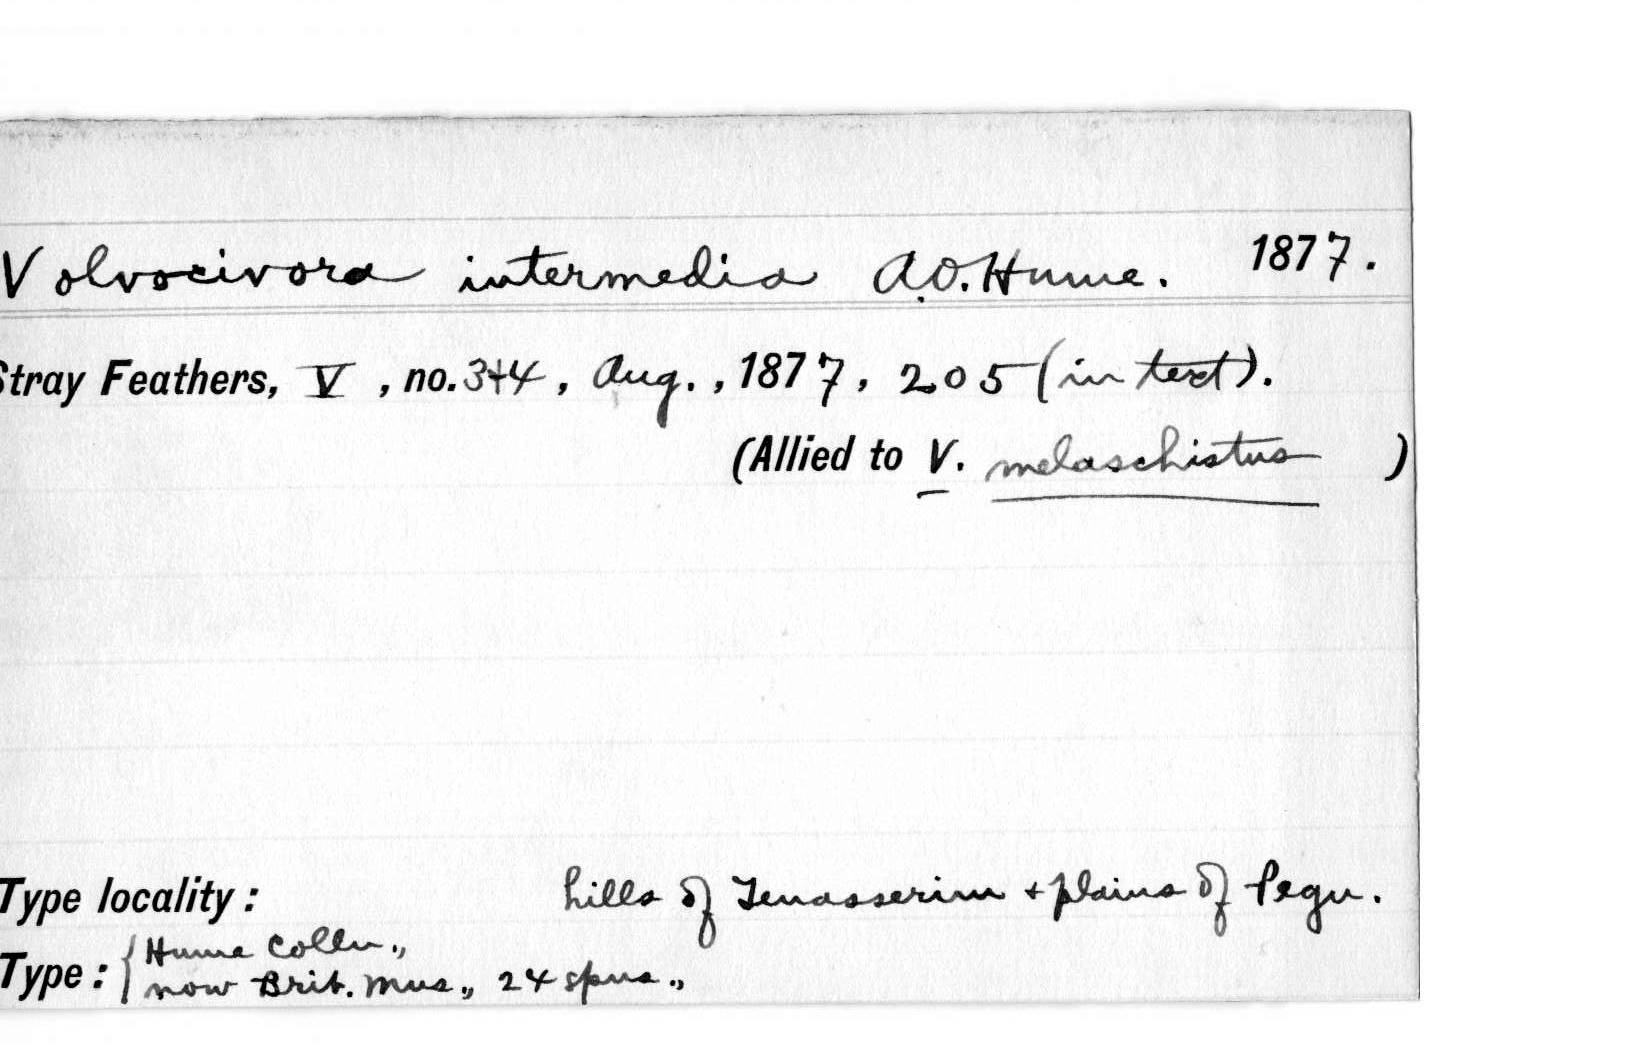 Volvocivora intermedia A.O. Hume. 1877.
Stray Feathers, V, no. 3+4, Aug., 1877, 205 (in text).
(Allied to V. melaschistus )
Type locality: hills of Tenasserim + plains of Pegu.
Type: { Hume Colln.,
now Brit. Mus., 24 spns.,